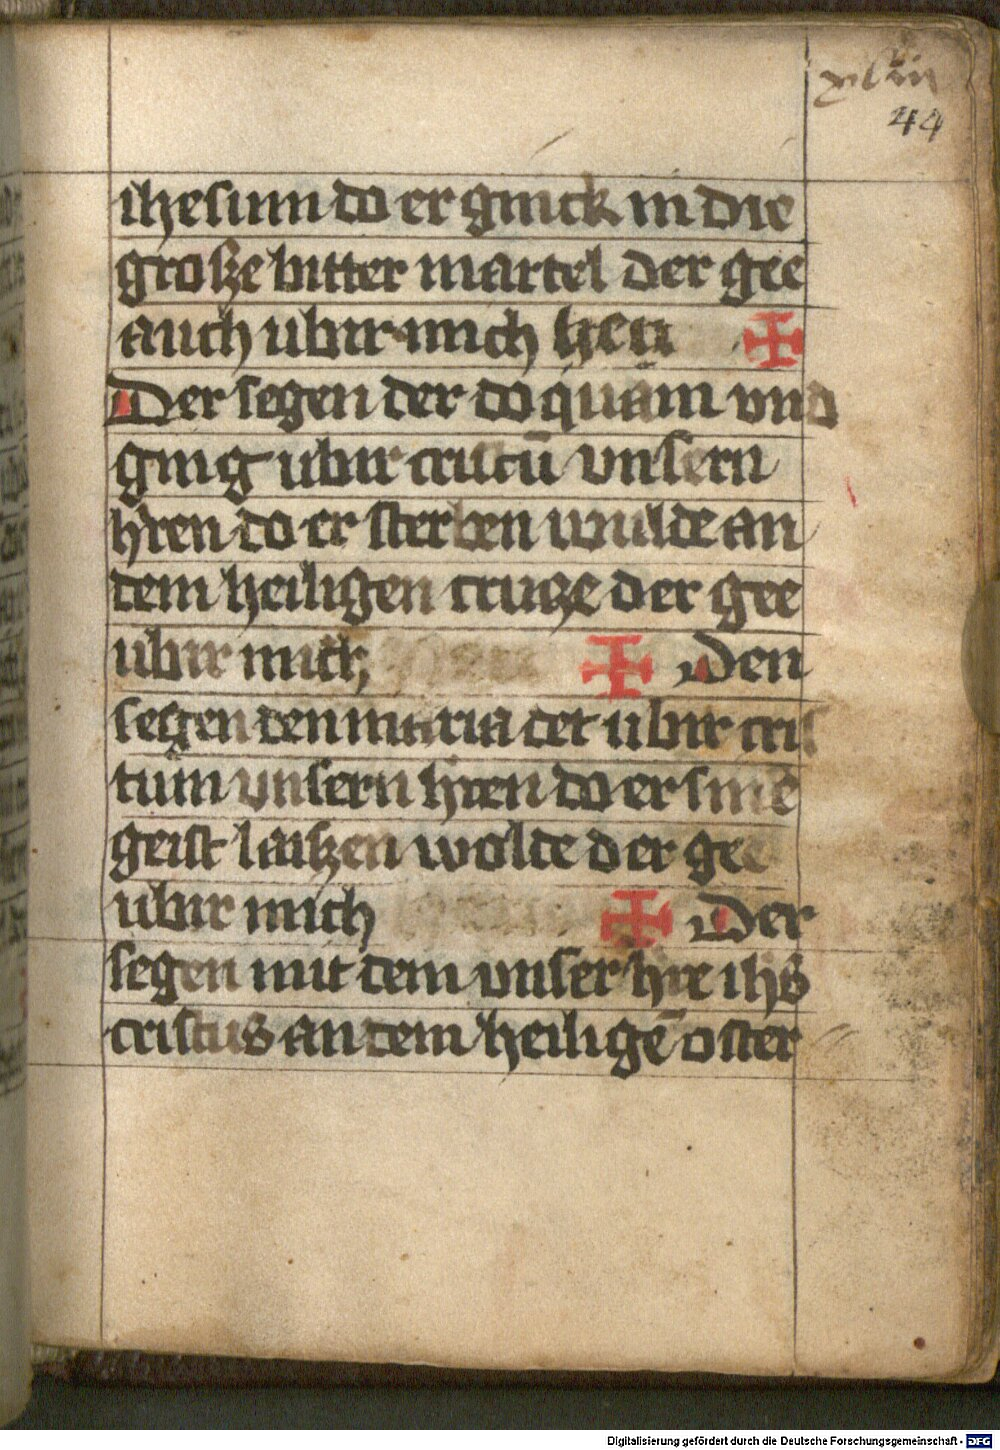 xliiii
44
ihesum do er ginck in die
grosze bitter martel der gee
auch ubir mich her ✠
Der segen der do quam vnd
ging ubir cristū vnsern
h'ren do er sterben wulde an
dem heiligen crutze der gee
ubir mich ✠ Den
segen den maria det ubir cris
tum vnsern h'ren do er sinē
geist laiszen wolde der gee
ubir mich ✠ Der
segen mit dem vnser h're ihs
cristus an dem heiligē oster
Digitalisierung gefördert durch die Deutsche Forschungsgemeinschaft - DFG